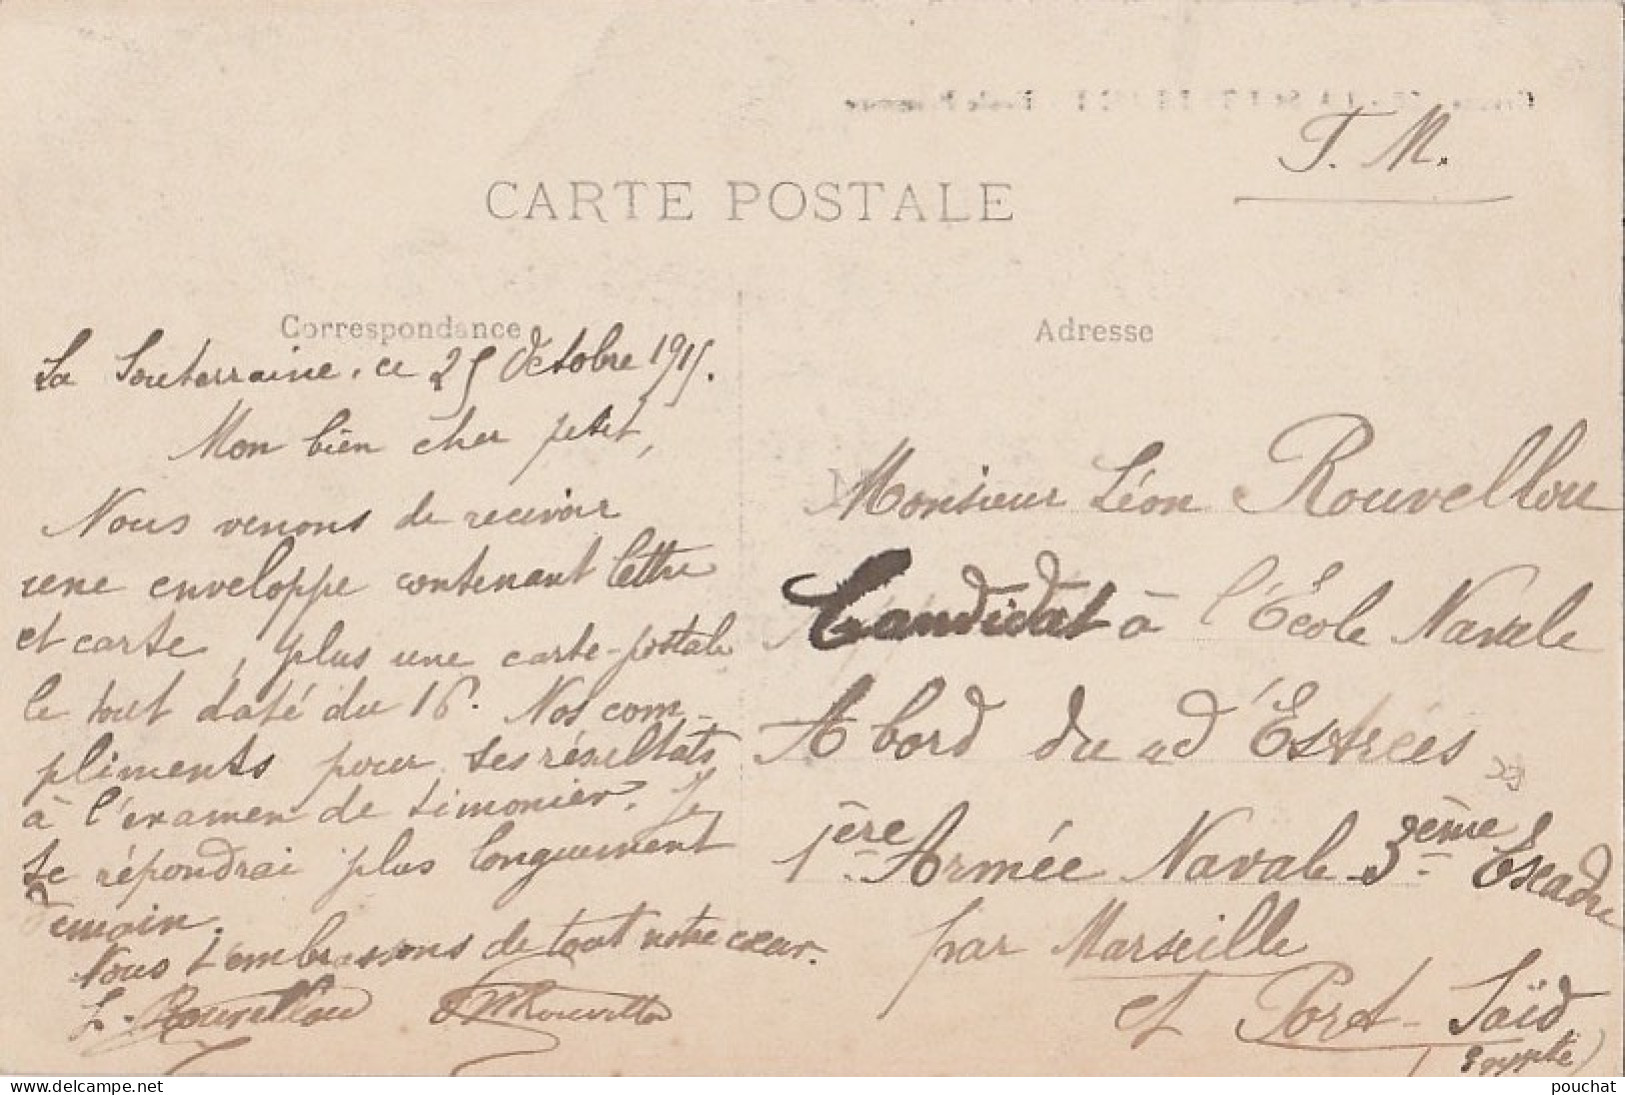 F. M.
CARTE POSTALE
Correspondance
Adresse
La Souterraine, ce 25 Octobre 1915.
Mon bien cher petit,
Nous venons de recevoir
une enveloppe contenant lettre
et carte, plus une carte-postale
le tout daté du 16. Nos com-
pliments pour tes résultats
à l'examen de timonier. Je
te répondrai plus longuement
demain.
Nous t'embrassons de tout notre cœur.
L. Rouvellou Rouvellou
Monsieur Léon Rouvellou
Candidat à l'École Navale
A bord du "d'Estrées
1ère Armée Navale 3ème Escadre
par Marseille
et Port-Saïd
(Egypte)
pouchat